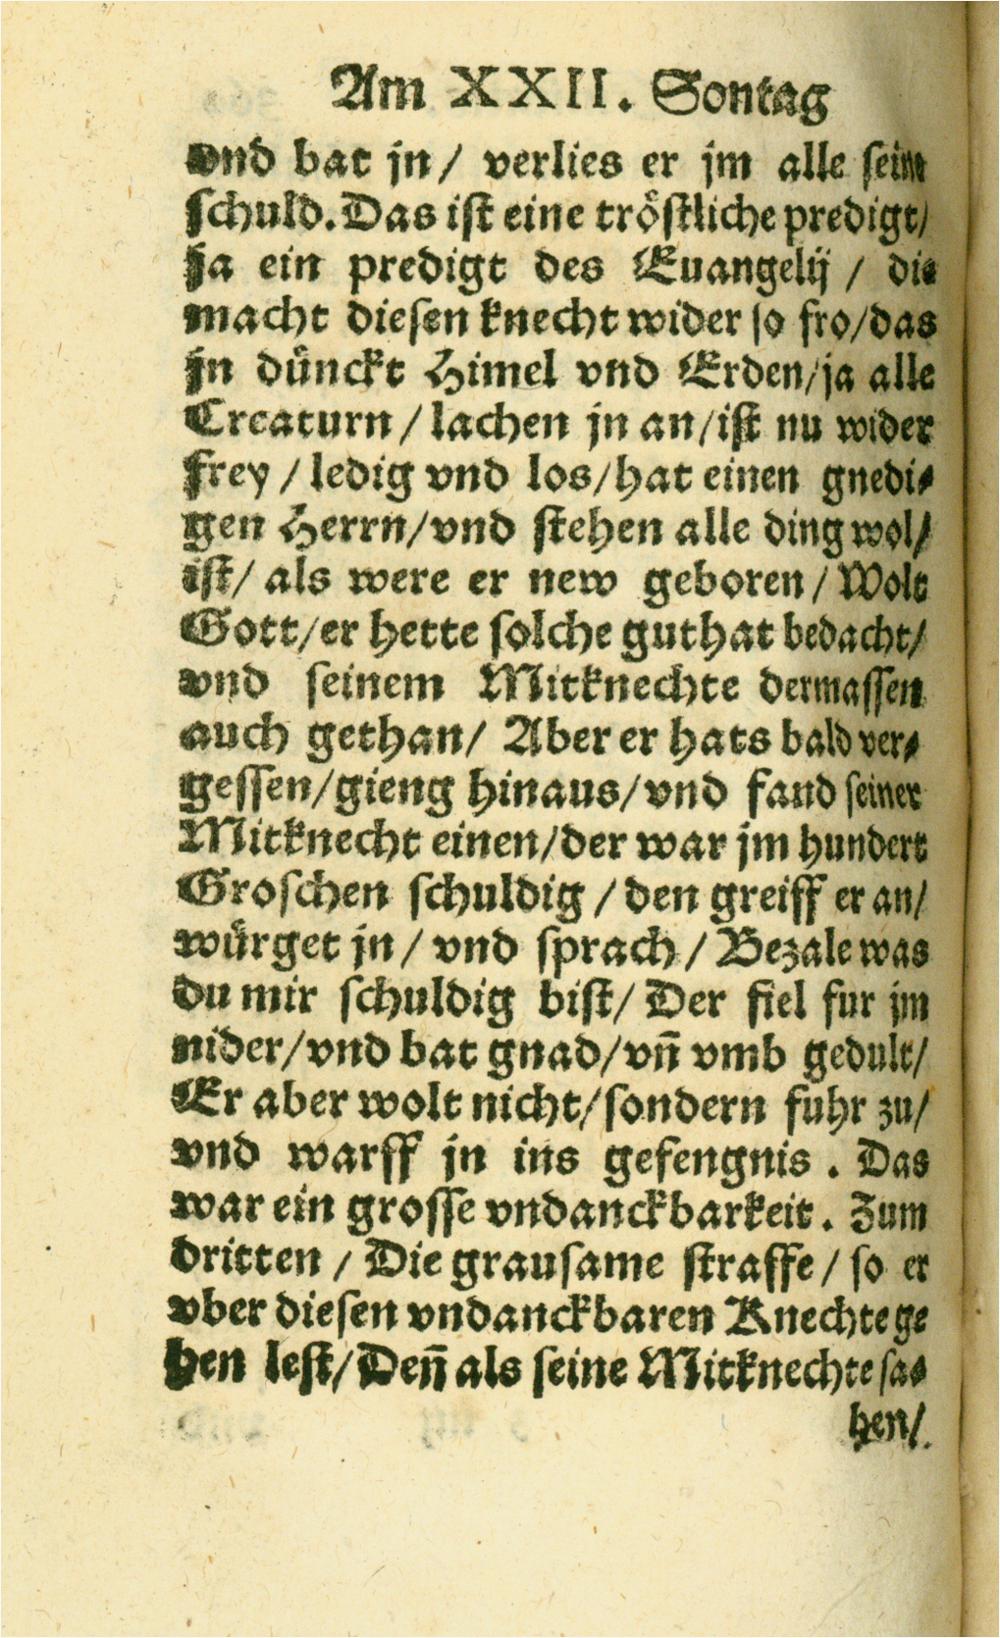 Am XXII. Sontag
vnd bat jn/ verlies er jm alle seine
schuld. Das ist eine tröstliche predigt/
ja ein predigt des Euangelij / die
macht diesen knecht wider so fro/das
jn dünckt Himel vnd Erden/ja alle
Creaturn / lachen jn an/ist nu wider
frey / ledig vnd los/hat einen gnedi-
gen Herrn/vnd stehen alle ding wol/
ist/ als were er new geboren/ Wolt
Gott/er hette solche guthat bedacht/
vnd seinem Mitknechte dermassen
auch gethan/ Aber er hats bald ver-
gessen/gieng hinaus/vnd fand seiner
Mitknecht einen/der war jm hundert
Groschen schuldig / den greiff er an/
würget jn / vnd sprach / Bezale was
du mir schuldig bist/ Der fiel fur jm
nider/vnd bat gnad/vn̄ vmb gedult/
Er aber wolt nicht/sondern fuhr zu/
vnd warff jn ins gefengnis. Das
war ein grosse vndanckbarkeit. Zum
dritten / Die grausame straffe / so er
vber diesen vndanckbaren Knechte ge
hen lest/Den̄ als seine Mitknechte sa-
hen/